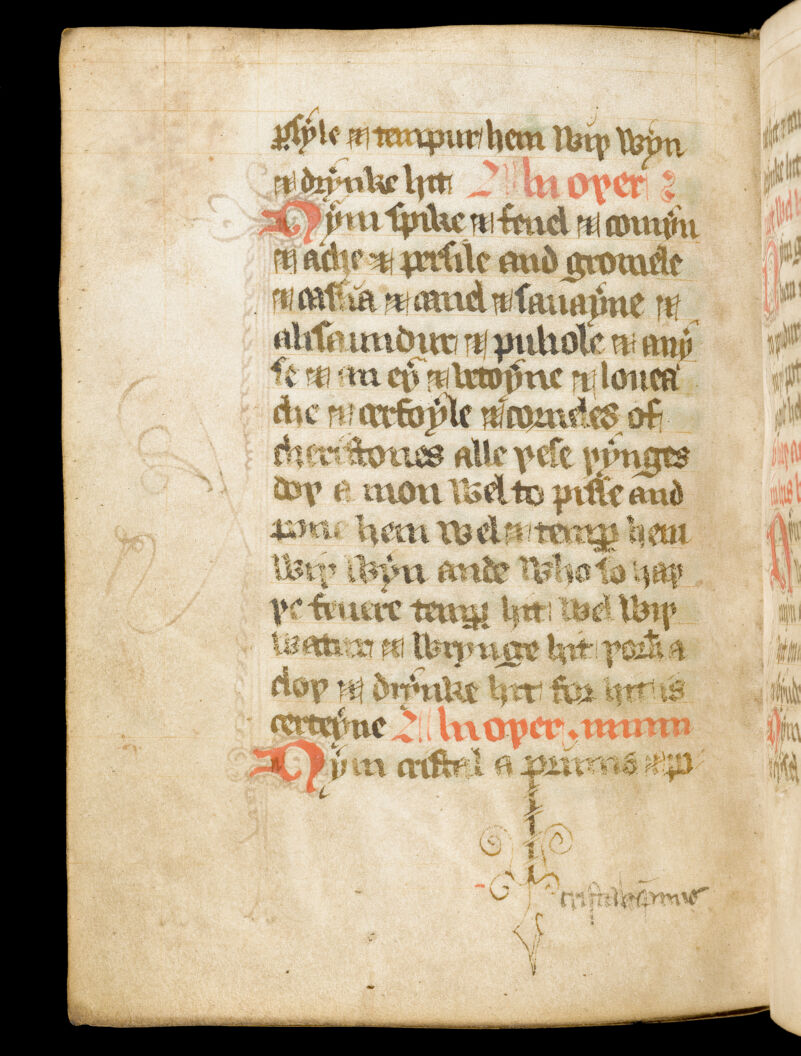 ꝑsyle ⁊ tempur hem wiþ wyn
⁊ drynke hit An oþer
Nym spike ⁊ fenel ⁊ comyn
⁊ ache ⁊ persile and gromele
⁊ cassia ⁊ canel ⁊ sauayne ⁊
alisaundur ⁊ puliole ⁊ any
se ⁊ an ey ⁊ betoyne ⁊ louea
che ⁊ cerfoyle ⁊ corneles of
cheristones alle þese þynges
doþ a mon wel to pisse and
hem wel ⁊ temꝑ hem
wiþ wyn ande who so haþ
þe feuere temꝑ hit wel wiþ
watur ⁊ wrynge hit þorh a
cloþ ⁊ drynke hit for hit is
certeyne An oþer
Nym cristal a primis ⁊ po